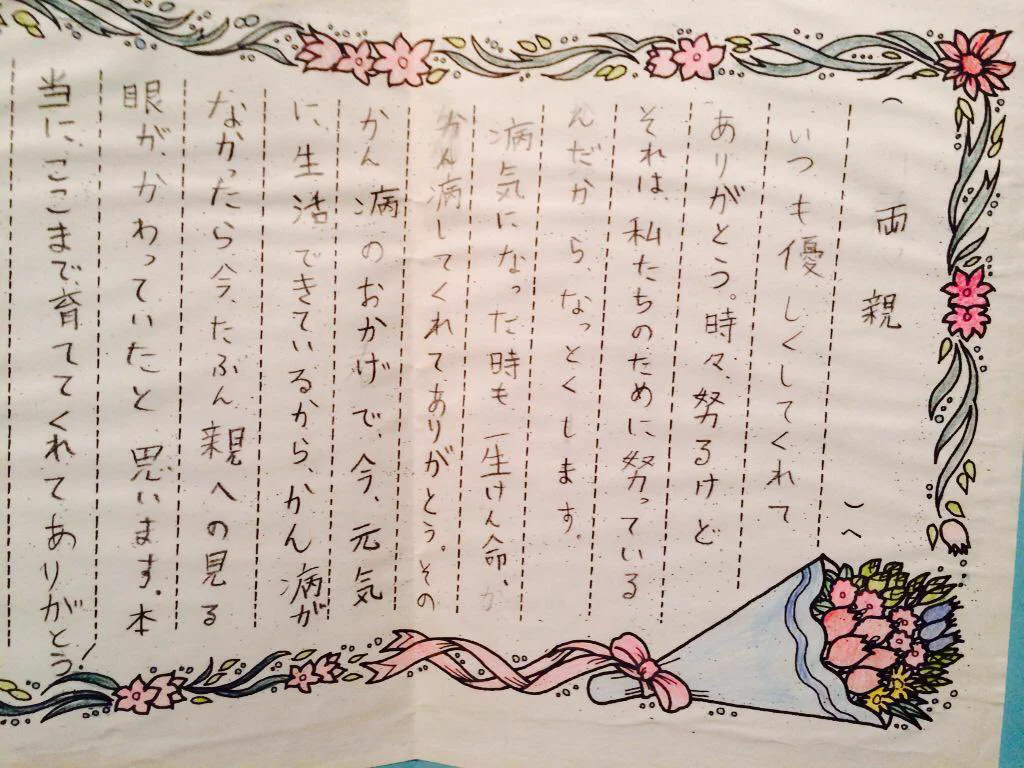 （両親）へ
いつも優しくしてくれて
ありがとう。時々、努るけど
それは、私たちのために努っている
んだから、なっとくします。
病気になった時も一生けん命、か
かん病してくれてありがとう。その
かん病のおかげで、今、元気
に、生活できているから、かん病が
なかったら、今、たぶん親への見る
眼が、かわっていたと思います。本
当に、ここまで、育ててくれてありがとう!